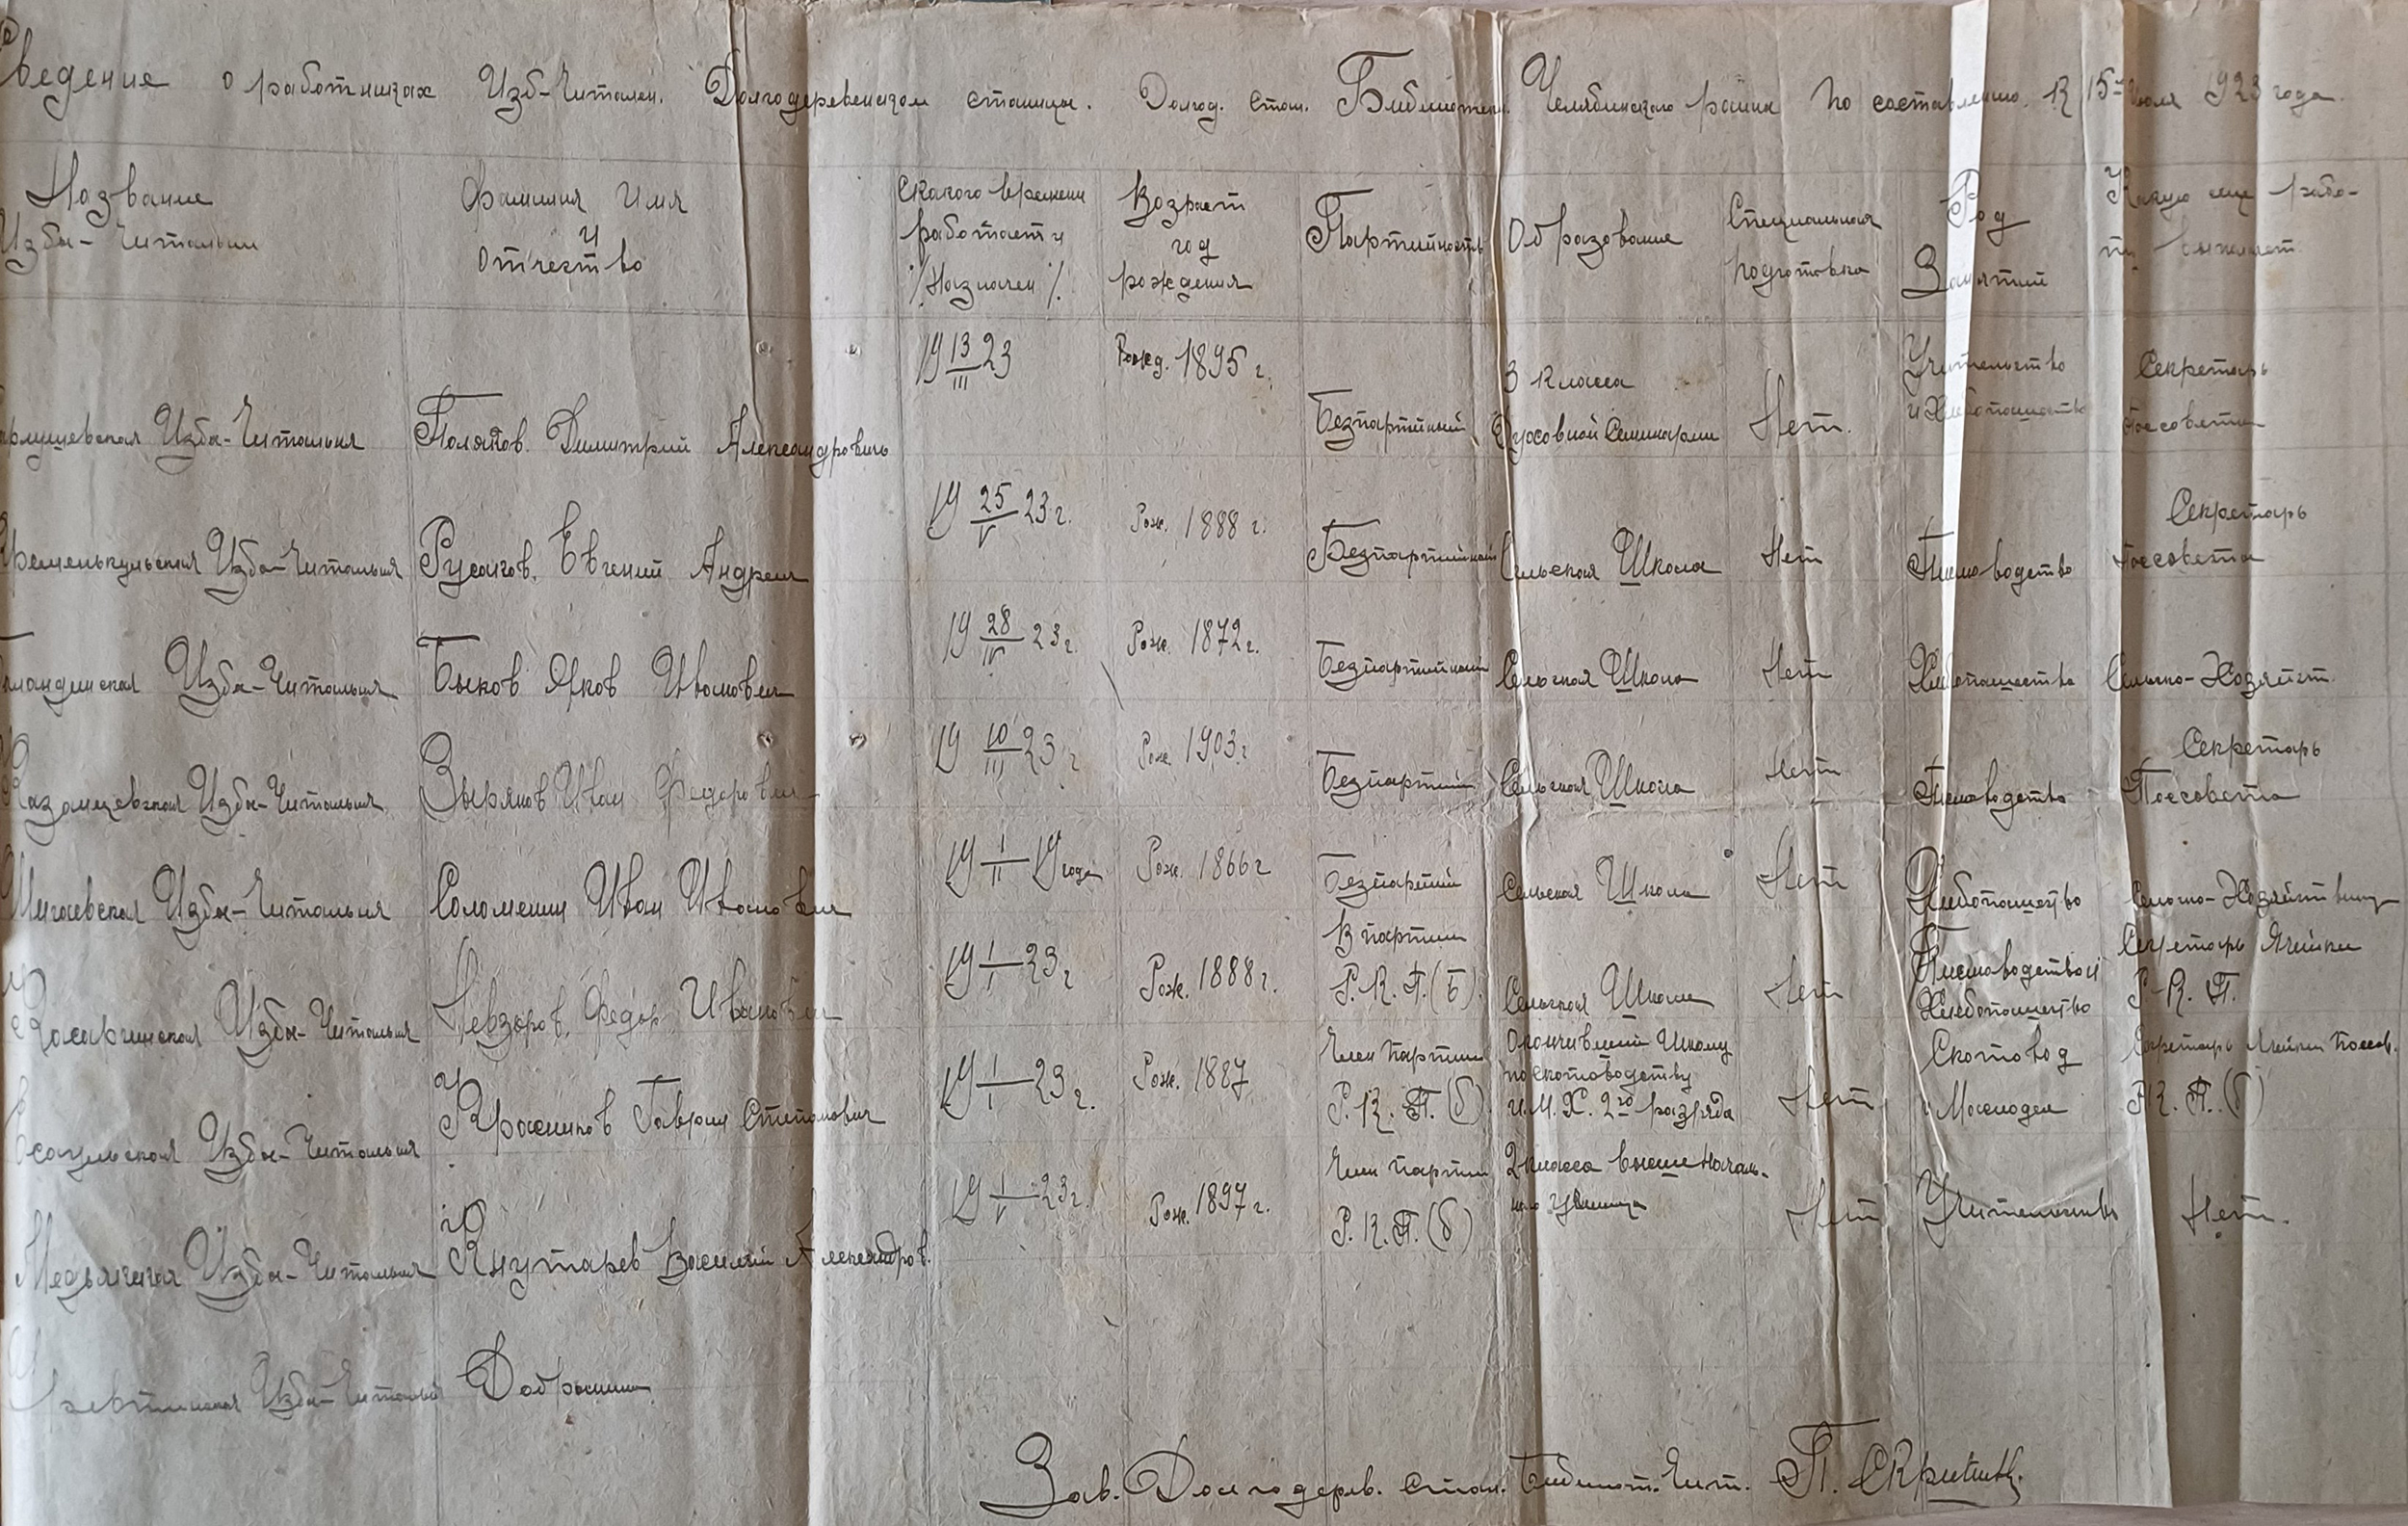 Сведение о работниках Изб-Читален. Долгодеревенском станицы. Долгод. стан. Библиотеки. Челябинского района по составлению. К 15-го июля 1923 года.
Название Избы-Читальни
Фамилия Имя и Отчество
С какого времени работает и /Назначен/
Возраст год рождения
Партийность
Образование
Специальная подготовка
Род Занятий
Какую еще работу выполняет
Изба-Читальня Поляков. Димитрий Александровичь 19 13/III 23 Рожд. 1895 г. Безпартийный 3 класса Духовной Семинарии Нет. Учительство и Хлебопашество Секретарь Поссовета
Кременькульская Изба-Читальня Русанов. Евгений Андреев 19 25/V 23 г. Рож. 1888 г. Безпартийный Сельская Школа Нет Письмоводство Секретарь Поссовета
Изба-Читальня Быков Яков Иванович 19 28/IV 23 г. Рож. 1872 г. Безпартийный Сельская Школа Нет Хлебопашество Сельско-Хозяйст.
Казанцевская Изба-Читальня Зырянов Иван Федорович 19 10/III 23 г Рож. 1903 г Безпартий Сельская Школа Нет Письмоводство Секретарь Поссовета
Изба-Читальня Соломеин Иван Иванович 19 1/II 19 года Рож. 1866 г Безпартий Сельская Школа Нет Хлебопашество Сельско-Хозяйствен
Изба-Читальня Невзоров. Федор Иванович 19 1/I 23 г Рож. 1888 г. В партии Р.К.П.(Б). Сельская Школа Нет Письмоводство и Хлебопашество Секретарь Ячейки Р.К.П.
Есаульская Изба-Читальня Гаврил Степанович 19 1/I 23 г. Рож. 1887 Член партии Р.К.П.(б) Окончивший Школу по скотоводству и М.Х. 2го разряда Нет Скотовод и Маслодел Секретарь Ячейки Посел. Р.К.П.(б)
Медьякская Изба-Читальня Кнутарев Василий Александров. 19 1/V 23 г. Рож. 1897 г. Член партии Р.К.П.(б) 2 класса высше началь-ного училища Нет Учительство Нет.
Изба-Читальня
Зав. Долгодерев. стан. Библиот. Чит. П.